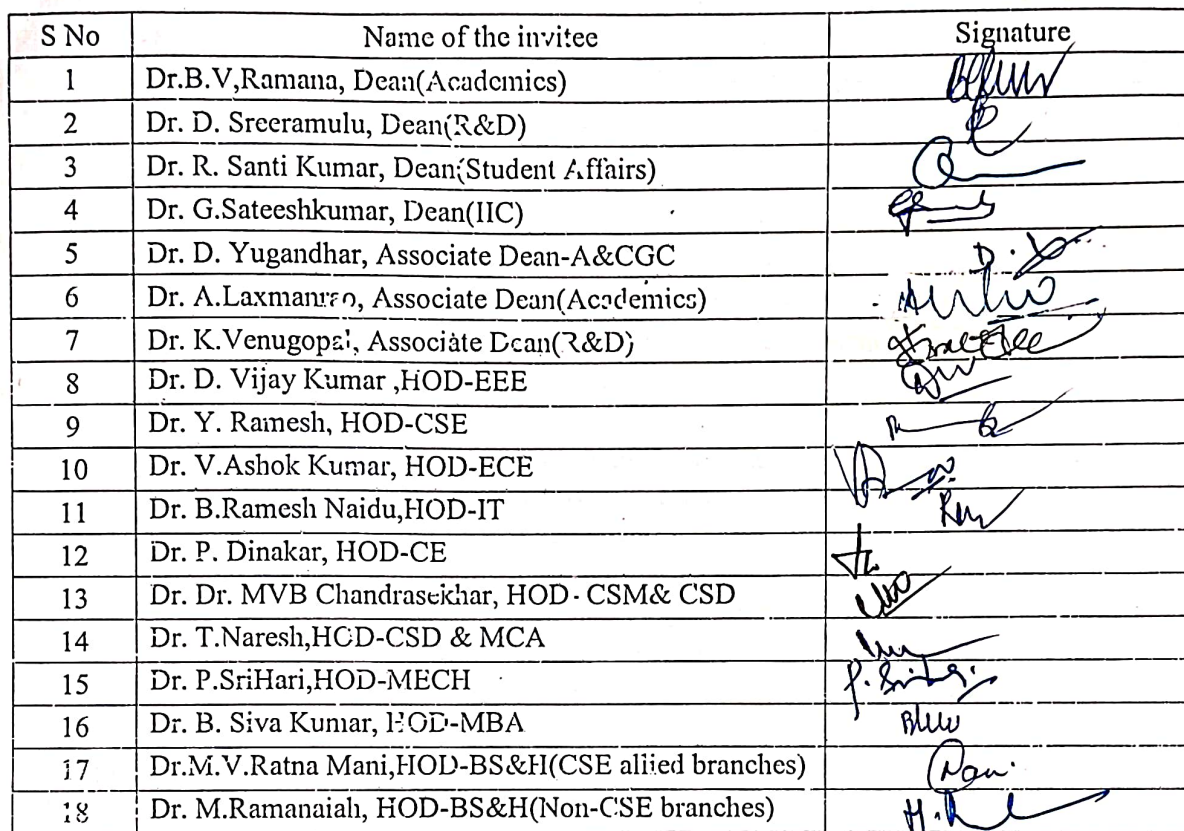 S No Name of the invitee Signature
1 Dr.B.V,Ramana, Dean(Academics)
2 Dr. D. Sreeramulu, Dean(R&D)
3 Dr. R. Santi Kumar, Dean(Student Affairs)
4 Dr. G.Sateeshkumar, Dean(IIC)
5 Dr. D. Yugandhar, Associate Dean-A&CGC
6 Dr. A.Laxmanrao, Associate Dean(Academics)
7 Dr. K.Venugopal, Associate Dean(R&D)
8 Dr. D. Vijay Kumar ,HOD-EEE
9 Dr. Y. Ramesh, HOD-CSE
10 Dr. V.Ashok Kumar, HOD-ECE
11 Dr. B.Ramesh Naidu,HOD-IT
12 Dr. P. Dinakar, HOD-CE
13 Dr. Dr. MVB Chandrasekhar, HOD- CSM& CSD
14 Dr. T.Naresh,HOD-CSD & MCA
15 Dr. P.SriHari,HOD-MECH
16 Dr. B. Siva Kumar, HOD-MBA
17 Dr.M.V.Ratna Mani,HOD-BS&H(CSE allied branches)
18 Dr. M.Ramanaiah, HOD-BS&H(Non-CSE branches)